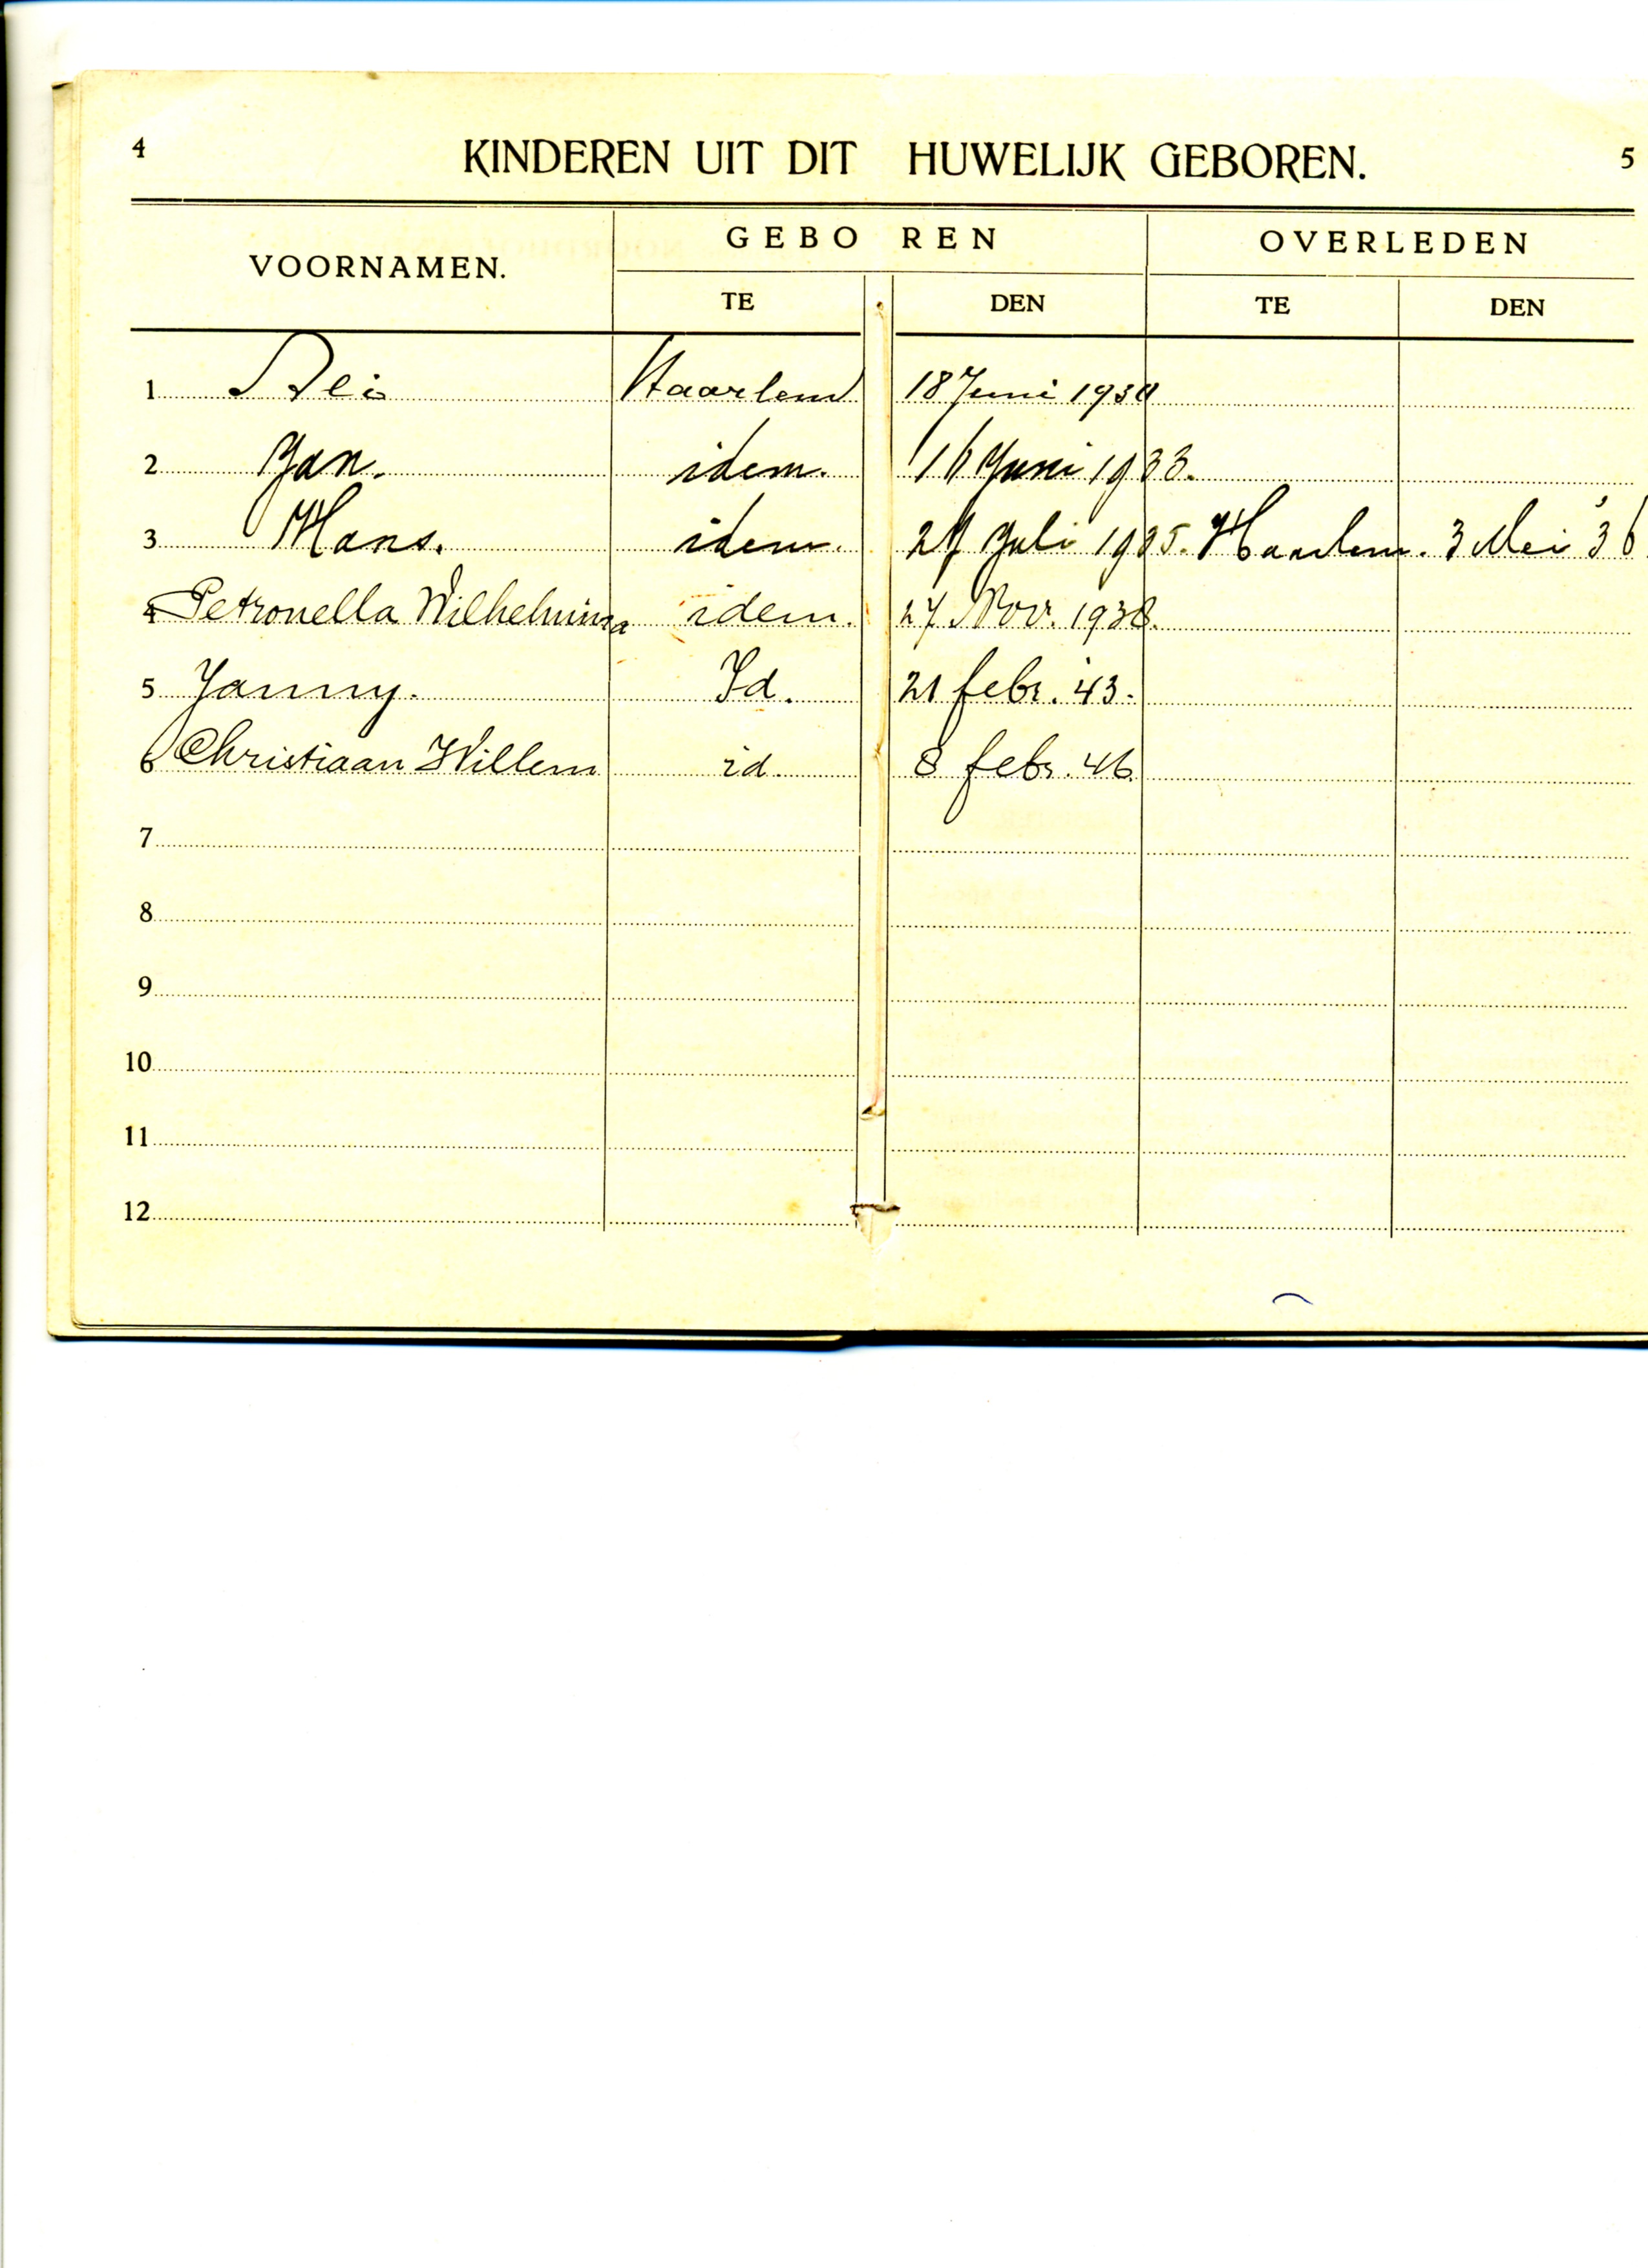 4 KINDEREN UIT DIT HUWELIJK GEBOREN. 5
VOORNAMEN. GEBOREN OVERLEDEN
TE DEN TE DEN
1 Haarlem 18 Juni
2 Jan. idem. 16 Juni 1933.
3 Hans. idem. Juli 1935. Haarlem. 3 Mei '36
4 Petronella Wilhelmina idem. 27 Nov. 1938.
5 Janny. Id. 21 febr. '43.
6 Christiaan Willem id. 8 febr. 46.
7
8
9
10
11
12